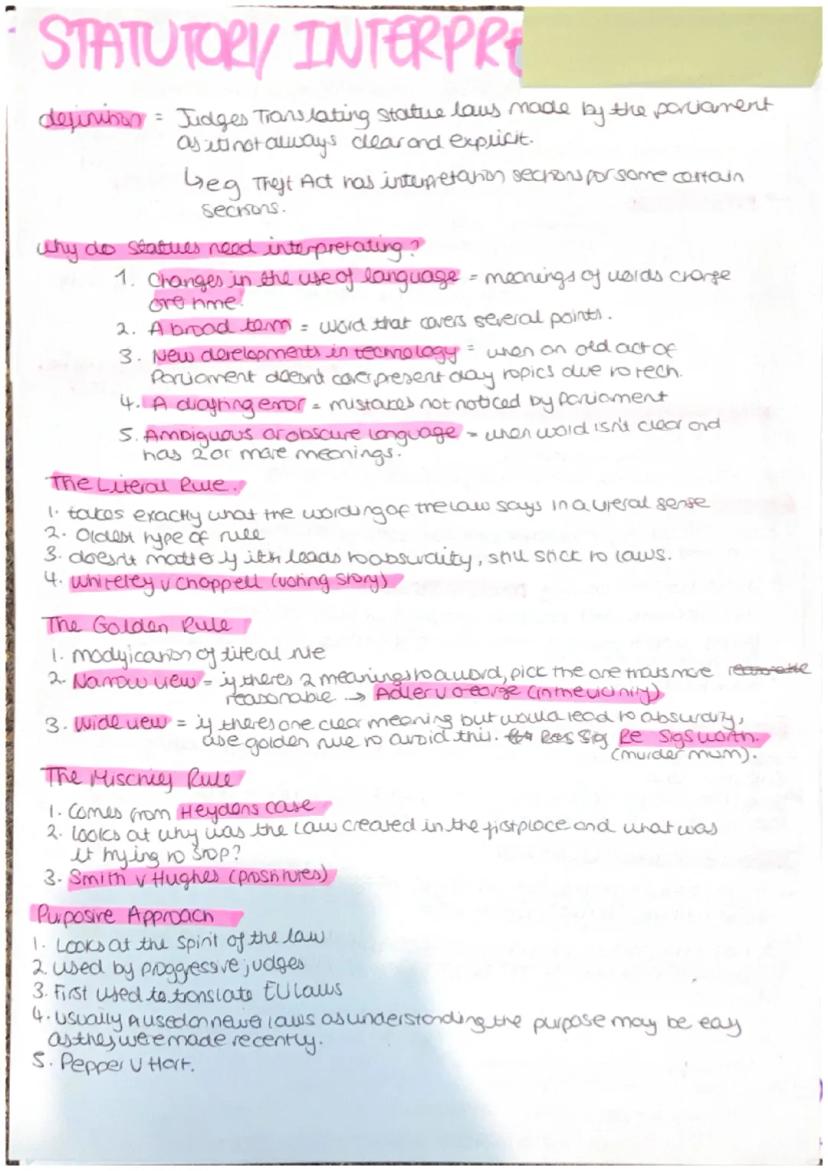 STATUTORY INTERPRE
definition = Judges Translating statue laws made by the parliament
as it not always clear and explicit.
↳ eg Theft Act has interpretation sections for some certain
sections.
why do statues need interpretating?
1. Changes in the use of language = meanings of words change
ore time.
2. A broad term = word that covers several points.
3. New developments in technology = when an old act of
Parliament doesnt cover present day topics due to tech.
4. A drafting error = mistakes not noticed by parliament
5. Ambiguous or obscure language = when word isnt clear and
has 2 or more meanings.
The Literal Rule.
1. takes exactly what the wording of the law says in a literal sense
2. Oldest type of rule
3. doesnt matter if it leads to absurdity, still stick to laws.
4. Whiteley v Chappell (voting story)
The Golden Rule
1. modification of literal rule
2. Narrow view = if theres 2 meanings to a word, pick the one thats more
reasonable → Adler v George (in the vicinity)
3. Wide view = if theres one clear meaning but would lead to absurdity,
use golden rule to avoid this. Re Sigsworth.
(murder mum).
The Mischief Rule
1. Comes from Heydens case
2. looks at why was the law created in the first place and what was
it trying to stop?
3. Smith v Hughes (prostitutes)
Puposive Approach
1. Looks at the spirit of the law
2. used by progressive judges
3. First used to translate EU laws
4. usually used on newer laws as understanding the purpose may be easy
as they were made recently.
5. Pepper v Hart.